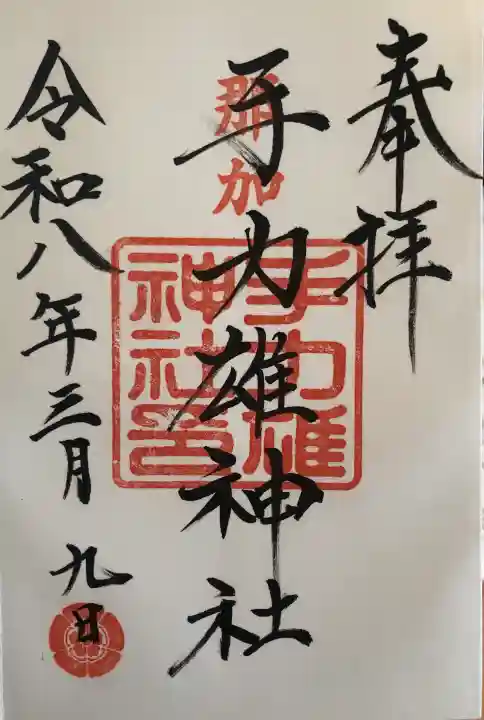 奉拝
那加
手力雄神社
手力雄
神社印
令和八年三月九日